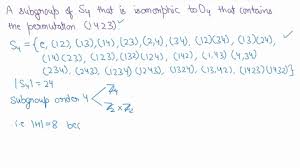 A subgroup of S4 that is isomorphic to D4 that contains
the permutation (1423)
S4 = {e, (12), (13), (14), (23), (2,4), (34), (12)(34), (13)(24),
(14)(23), (123), (132), (124), (142), (1,43), (4,34)
(234), (243), (1234), (1243), (1324), (13,42), (1423), (1432)}
|S4| = 24
Subgroup order 4
Z4
Z2 × Z2
i.e. |H| = 8 bec